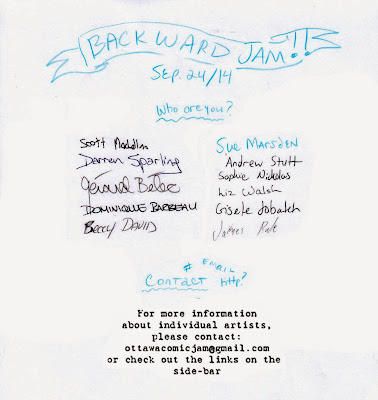 BACKWARD JAM!!
Sep. 24/14
Who are you?
Scott
Darren Sparling
Gérard
DOMINIQUE BARBEAU
Beccy DAVID
Sue Marsden
Andrew Stutt
Sophie Nickolas
Liz Walsh
Gisele
James
# EMAIL
CONTACT http?
For more information
about individual artists,
please contact:
ottawacomicjam@gmail.com
or check out the links on the
side-bar